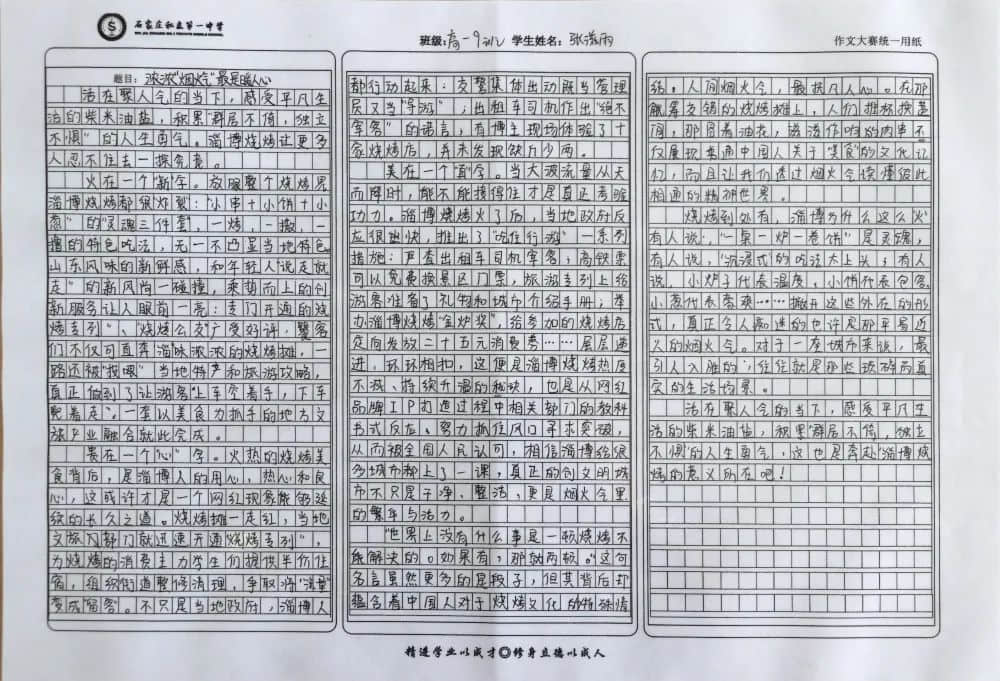 石家庄私立第一中学
班级:高一9班 学生姓名:
作文大赛统一用纸
题目:浓浓"烟火气"最是暖人心
活在聚人气的当下,感受平凡生
活的柴米油盐,积累"群居不倚,独立
不惧"的人生勇气。淄博烧烤让更多
人忍不住去一探究竟。
火在一个"新"字。放眼整个烧烤界
淄博烧烤都很炸裂:"小串十小饼十小
葱"的"灵魂三件套",一烤,一撒,一
撸的特色吃法,无一不凸显当地特色
山东风味的新鲜感,和年轻人"说走就
走"的新风尚一碰撞,乘势而上的创
新服务让人眼前一亮:专门开通的烧
烤专列"、"烧烤公交"广受好评,鬟客
们不仅可直奔淄味浓浓的烧烤摊,一
路还被"投喂"当地特产和旅游攻略,
真正做到了让游客"上车空着手,下车
驼着走"。一套以美食为抓手的地方文
旅产业融合就此完成。
贵在一个"心"字。火热的烧烤美
食背后,是淄博人的用心,热心和良
心,这或许才是一个网红现象能够延
续的长久之道。烧烤摊一走红,当地
文旅部门就迅速开通"烧烤专列",
为烧烤的消费主力学生们提供半价住
宿,组织街道整修清理,争取将"流量"
变成"留客"。不只是当地政府,淄博人
都行动起来:交警集体出动既当管理
员又当"导游";出租车司机作出"绝不
宰客"的诺言,有博主现场体验了十
家烧烤店,并未发现缺斤少两。
美在一个"真"字。当大波流量从天
而降时,能不能接得住才是真正考验
功力。淄博烧烤火了后,当地政府反
应很迅快,推出了"吃住行游"一系列
措施:严查出租车司机宰客;高铁票
可以免费换景区门票,旅游专列上给
游客准备了礼物和城市介绍手册;举
办淄博烧烤"金炉奖",给参加的烧烤店
定向发放二十五元消费券……层层递
进,环环相扣,这便是淄博烧烤热度
不减、持续升温的秘诀,也是从网红
品牌IP打造过程中相关部门的教科
书式反应、努力抓住风口寻求突破,
从而被全国人民认可,相信淄博给很
多城市都上了一课,真正的创文明城
市不只是干净、整洁,更是烟火气里
的繁华与活力。
"世界上没有什么事是一顿烧烤不
能解决的。如果有,那就两顿。"这句
名言虽然更多的是段子,但其背后却
蕴含着中国人对于烧烤文化的特殊情
结。人间烟火气,最抚凡人心。在那
觥筹交错的烧烤摊上,人们推杯换盏
间,那冒着油花,滋滋作响的肉串不
仅展现普通中国人关于"美食"的文化记
忆,而且让我们透过烟火气读懂彼此
相通的精神世界。
烧烤到处有,淄博为什么这么火
有人说,"一桌一炉一卷饼"是灵魂,
有人说,"沉浸式"的吃法太上头;有人
说,小炉子代表温度、小饼代表包容
小葱代表豪爽……撇开这些外在的形
式,真正令人痴迷的也许是那平易近
人的烟火气。对于一座城市来说,最
引人入胜的,往往就是那些琐碎而真
实的生活场景。
活在聚人气的当下,感受平凡生
活的柴米油盐,积累"群居不倚,独立
不惧的人生勇气",这也是奔赴"淄博烧
烤的意义所在吧!
精进学业以成才 修身立德以成人